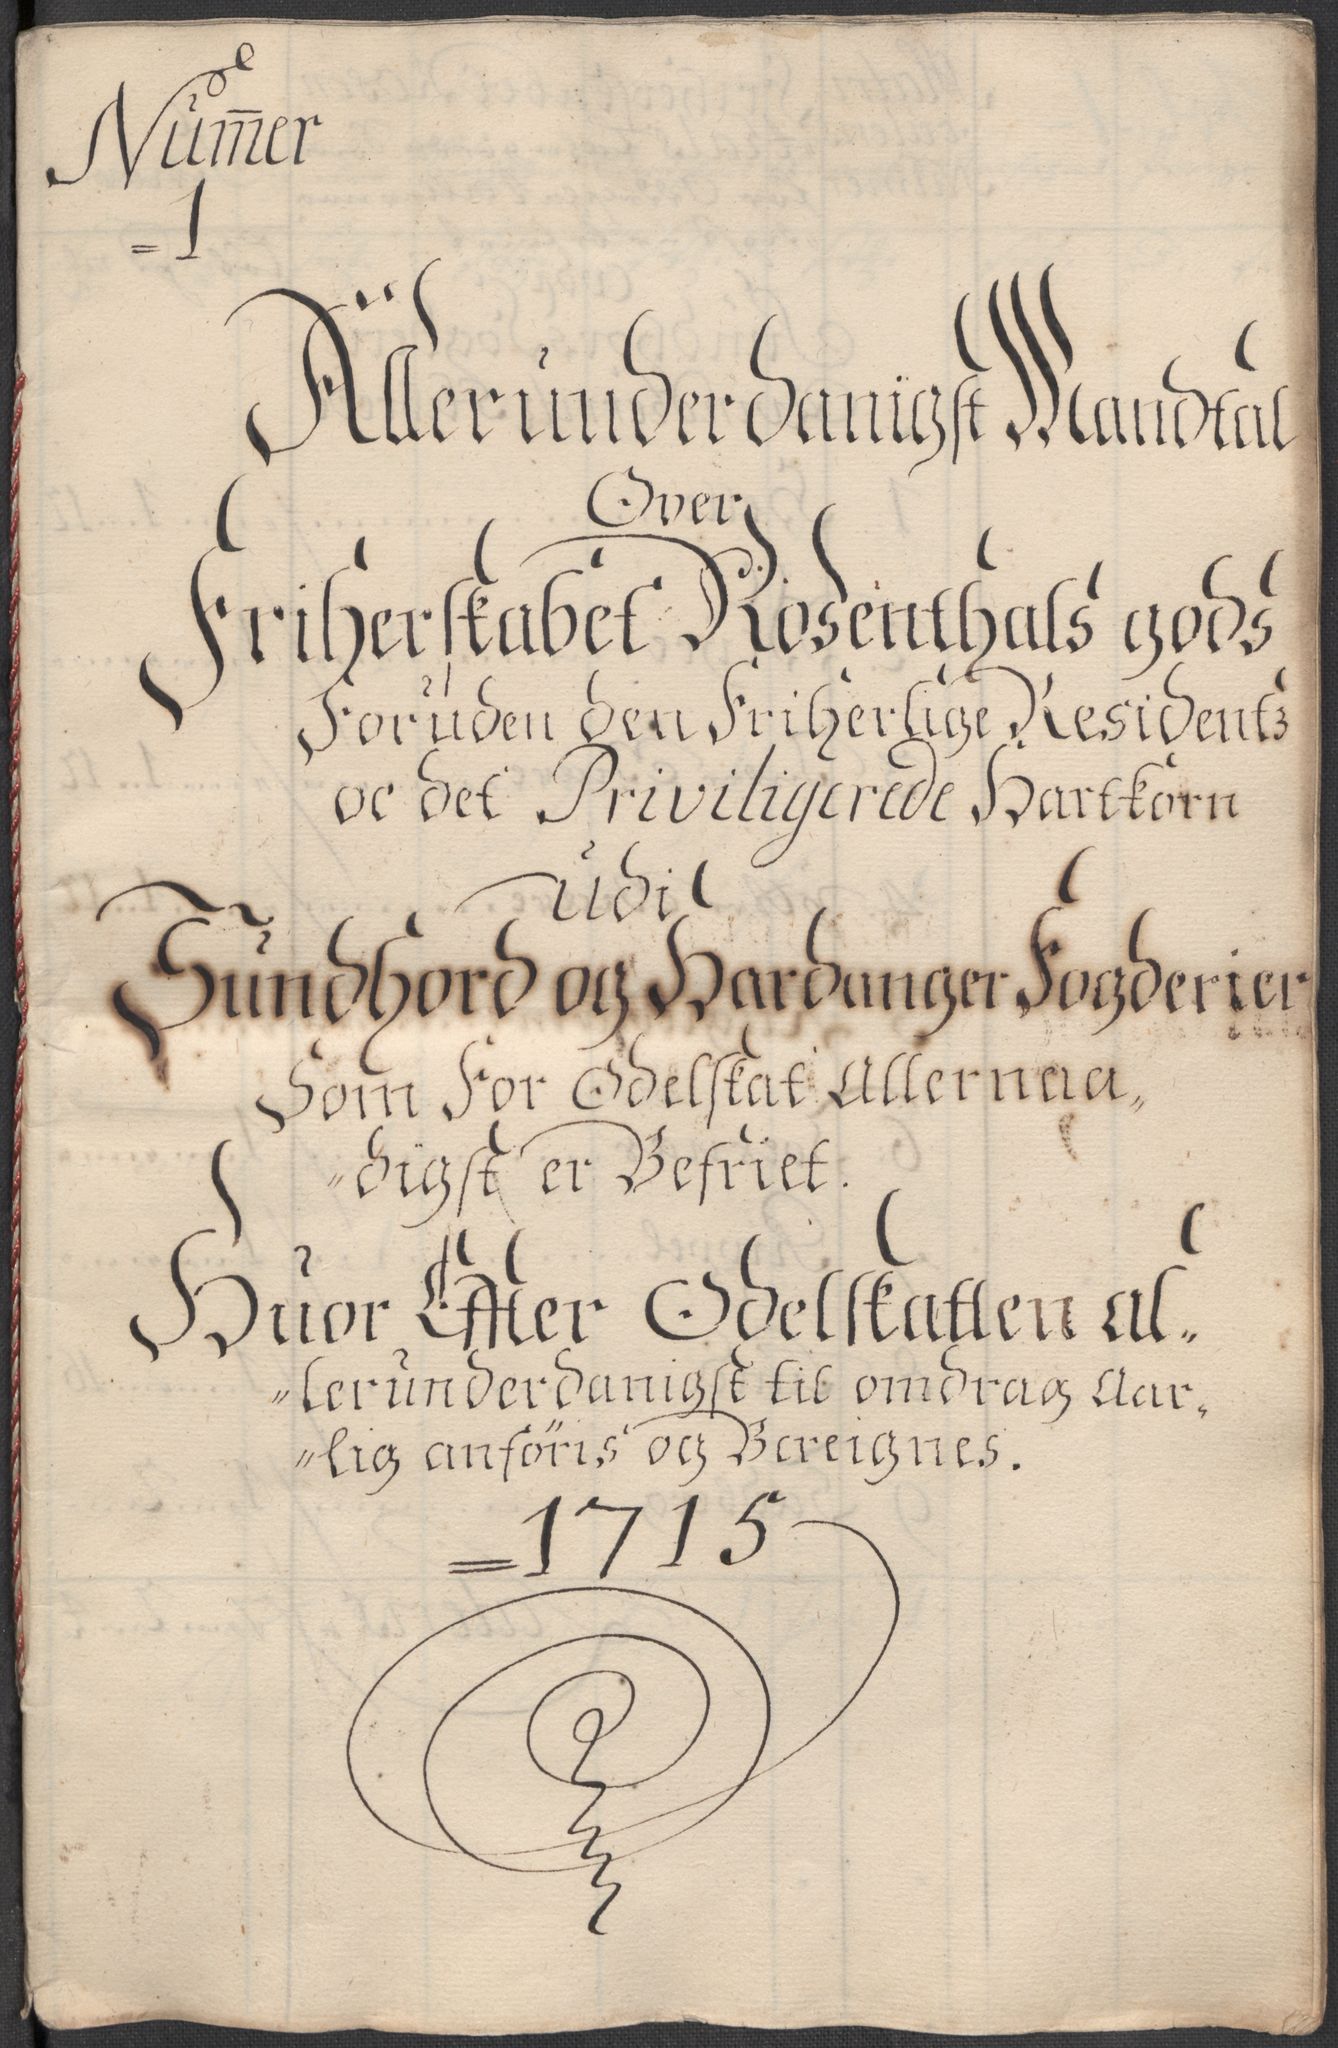 Num̅er
=1
Alleründerdanigst Mandtal
Over
Friherskabet Rosenthals gods
Forüden den Friherlige Residents
oc det Priviligerede Hartkorn
Udi
Sündhord og Hardanger Fogderier
Som For Odelskat Allernaa„
„digst er Befriet.
Hüor Efter Odelskatten al„
„leründerdanigst til omdrag Aar„
„lig anföris og Bereignes.
=1715